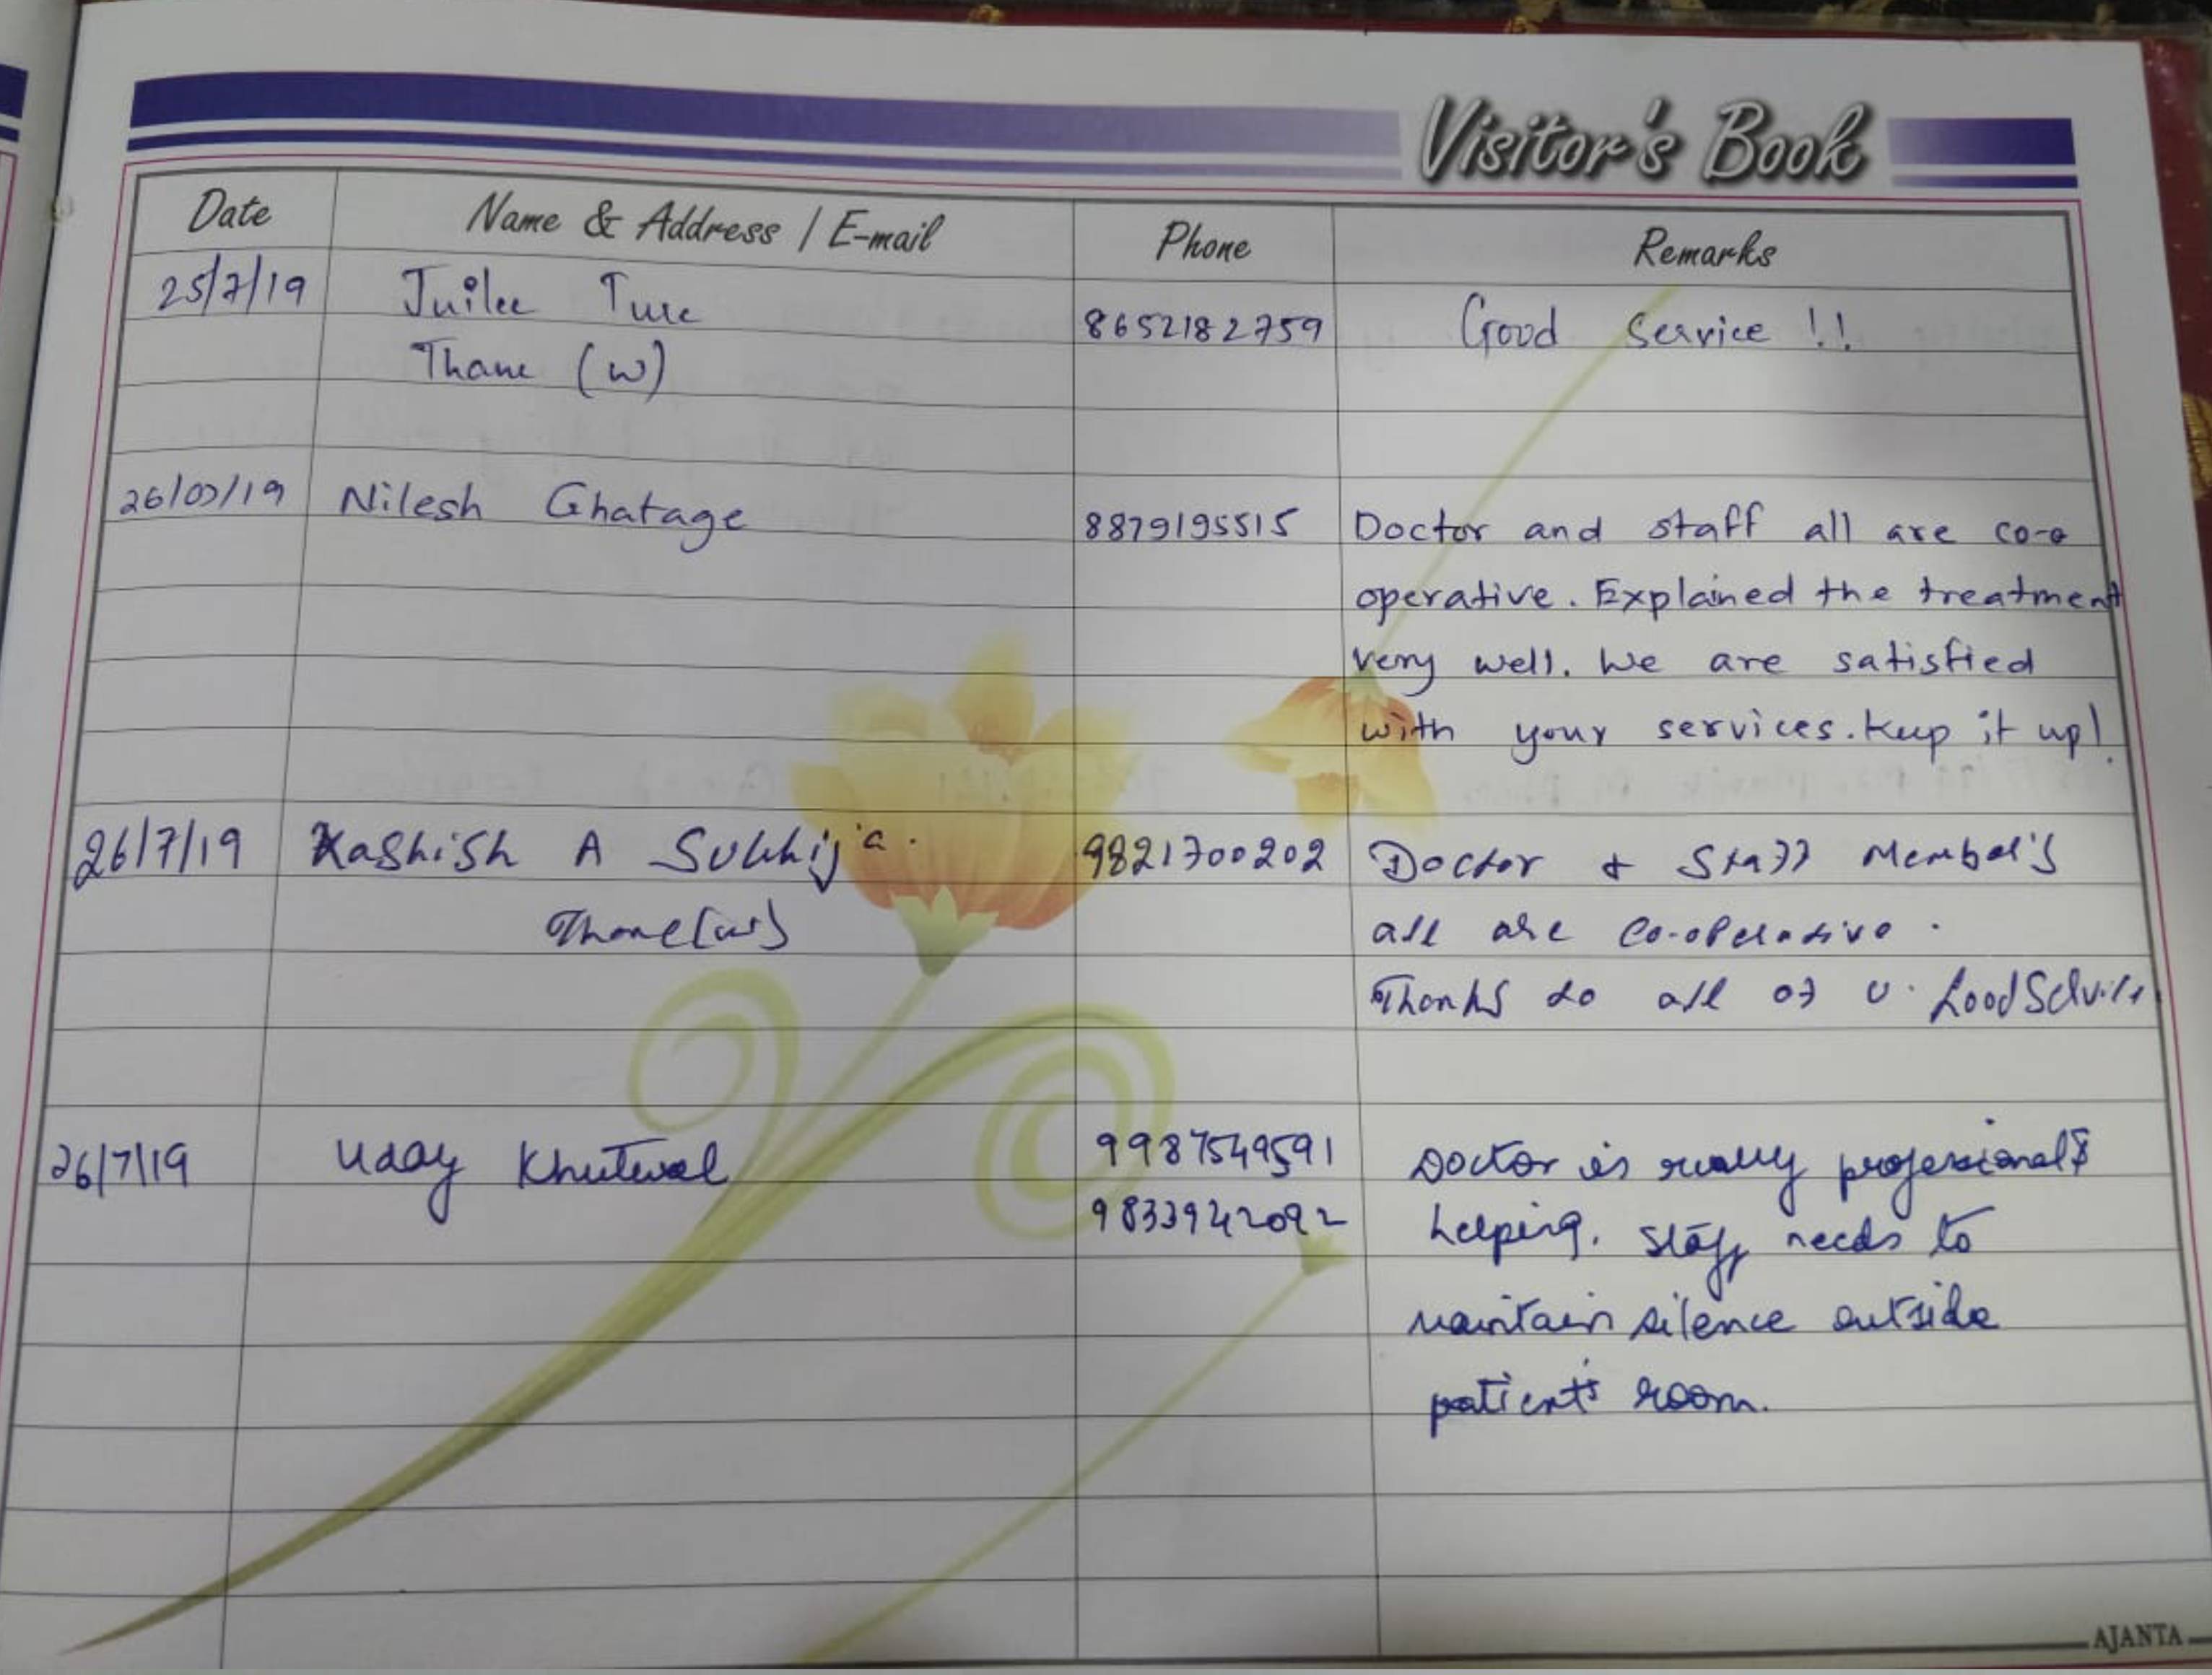 Visitor's Book
Date Name & Address / E-mail Phone Remarks
25/7/19 Juilee 8652182759 Good Service !!
Thane (W)
26/07/19 Nilesh Ghatage 8879195515 Doctor and staff all are co-o
operative. Explained the treatment
very well. We are satisfied
with your services. Keep it up!
26/7/19 Kashish A Sukhija. 9821700202 Doctor & Staff Member's
Thane (w) all are co-operative.
Thanks to all of U. Good Service
26/7/19 Uday Khutwal 9987549591 Doctor is really professional &
9833942092 helping. Staff needs to
maintain silence outside
patient's room.
AJANTA